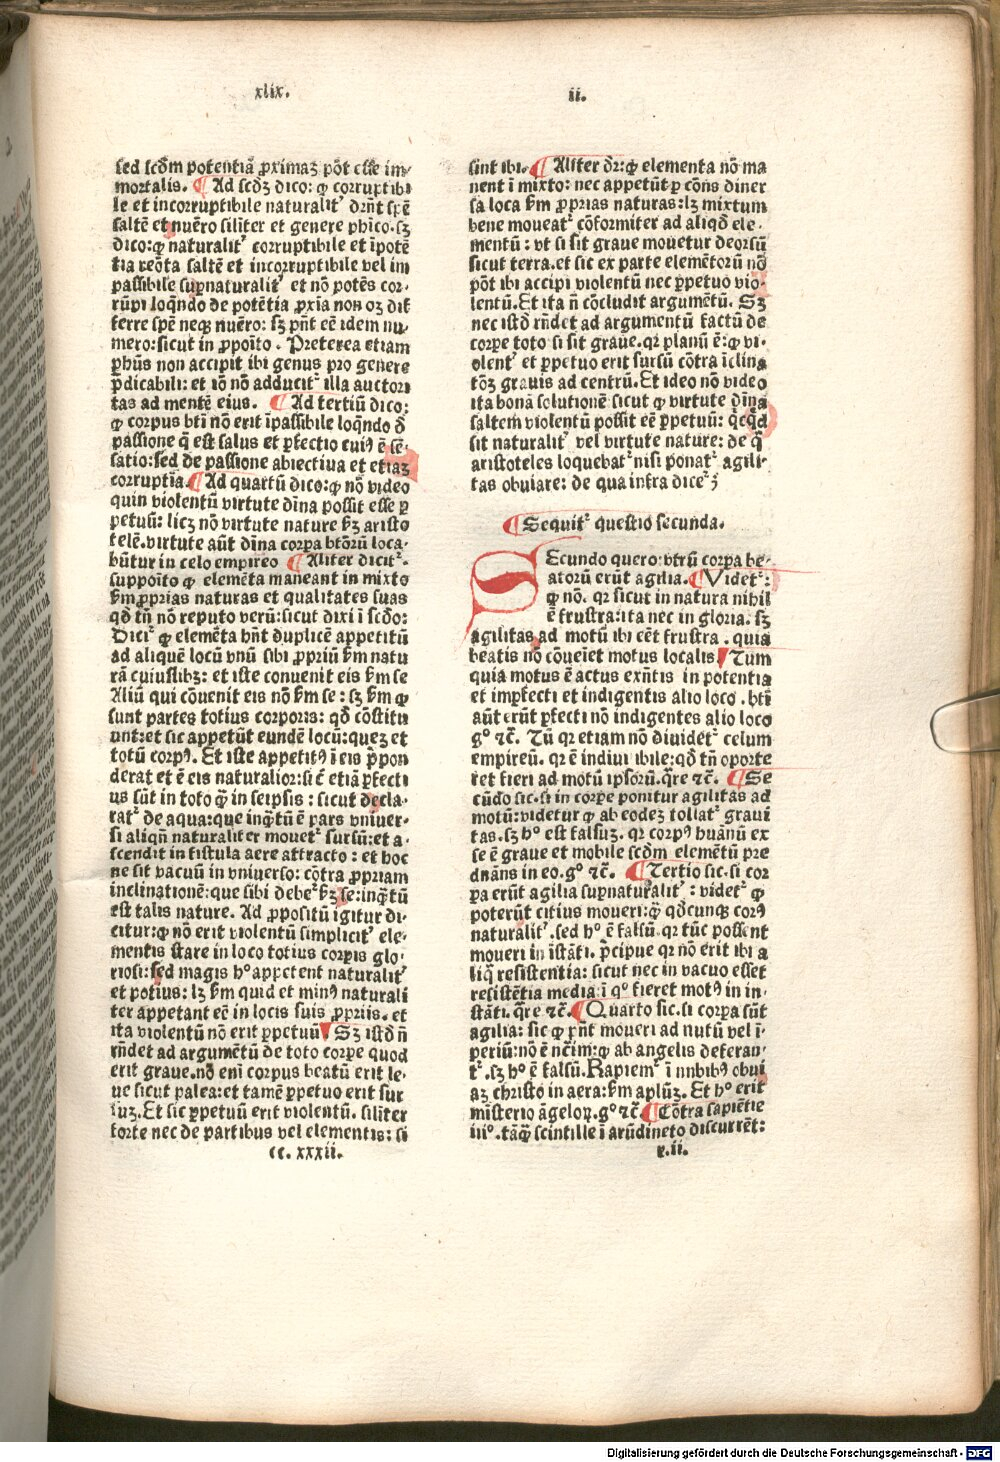 xlix.
ii.
sed scd̄m potentiā ꝓximaꝫ pōt esse im⸗
mortalis. ¶ Ad scd̄ꝫ dico: ꝙ corruptibi
le et incorruptibile naturalit᷑ dr̄nt spē
saltē et nuēro siliter et genere phico.sꝫ
dico:ꝙ naturalit᷑ corruptibile et īpotē
tia reōta saltē et incorruptibile vel im
passibile suꝑnaturalit᷑ et nō potēs cor⸗
rūpi loqn̄do de potētia ꝓxīa non oꝫ dif
ferre spē neqꝫ nuēro: sꝫ pn̄t eē idem nu⸗
mero:sicut in ꝓpoīto . Preterea etiam
ꝓhūs non accipit ibi genus pro genere
p̄dicabili: et iō nō adducit᷑ illa auctori
tas ad mentē eius. ¶ Ad tertiū dico:
ꝙ corpus bti nō erit īpassibile loqn̄do d̄
passione q̄ est salus et ꝑfectio cuiꝰ ē sē⸗
satio:sed de passione abiectiua et etiaꝫ
corruptīa.¶ Ad quartū dico:ꝙ nō video
quin violentū virtute dīna possit esse ꝑ
petuū: licꝫ nō virtute nature ẜꝫ aristo
telē.virtute aūt dīna corꝑa btōrū loca⸗
būtur in celo empireo ¶ Aliter dicit᷑.
suppoīto ꝙ elemēta maneant in mixto
ẜm ꝓprias naturas et qualitates suas
qd̄ tn̄ nō reputo verū:sicut dixi ī scd̄o:
Dici᷑ ꝙ elemēta hn̄t duplicē appetitū
ad aliquē locū vnū sibi ꝓpriū ẜm natu
rā cuiuslibꝫ: et iste conuenit eis ẜm se
Aliū qui cōuenit eis nō ẜm se: sꝫ ẜm ꝙ
sunt partes totius corporis: qd̄ cōstitu
unt:et sic appetūt eundē locū:queꝫ et
totū corpꝰ. Et iste appetitꝰ ī eis p̄pon
derat et ē eis naturalior:si c̄ etiā ꝑfecti
us sūt in toto q̄ in seipsis : sicut decla⸗
rat᷑ de aqua:que inq̄tū ē pars vniuer⸗
si aliqn̄ naturaliter mouet᷑ sursū:et a⸗
scendit in fistula aere attracto : et hoc
ne sit vacuū in vniuerso: cōtra ꝓpriam
inclinationē:que sibi debet᷑ ẜꝫ se:inq̄tū
est talis nature. Ad ꝓpositū igitur di⸗
citur:ꝙ nō erit violentū simplicit᷑ ele⸗
mentis stare in loco totius corꝑis glo⸗
riosi:sed magis hº appetent naturalit᷑
et potius: lꝫ ẜm quid et minꝰ naturali
ter appetant eē in locis suis ꝓpriis. et
ita violentū nō erit ꝑpetuū ¶ Sꝫ istd̄ n̄
rn̄det ad argumētū de toto corꝑe quod
erit graue.nō eni corpus beatū erit le⸗
ue sicut palea:et tamē ꝑpetuo erit sur
suꝫ.Et sic ꝑpetuū erit violentū. siliter
forte nec de partibus vel elementis: si
cc. xxxii.
sint ibi. ¶ Aliter dr̄:ꝙ elementa nō ma
nent ī mixto: nec appetūt ꝑ cōns diuer
sa loca ẜm ꝓprias naturas: lꝫ mixtum
bene moueat᷑ cōformiter ad aliqd̄ ele⸗
mentū : vt si sit graue mouetur deorsū
sicut terra.et sic ex parte elemētorū nō
pōt ibi accipi violentū nec ꝑpetuo vio⸗
lentū.Et ita n̄ cōcludit argumētū. Sꝫ
nec istd̄ rn̄det ad argumentū factū de
corꝑe toto si sit graue.qꝛ planū ē:ꝙ vi⸗
olent᷑ et ꝑpetuo erit sursū cōtra īclina
tōꝫ grauis ad centrū.Et ideo nō video
ita bonā solutionē sicut ꝙ virtute dīna
saltem violentū possit eē ꝑpetuū: q̄cqd̄
sit naturalit᷑ vel virtute nature: de q̄
aristoteles loquebat᷑ nisi ponat᷑ agili⸗
tas obuiare: de qua infra dicet᷑ ;
¶ Sequit᷑ questio secunda.
SEcundo quero:vtrū corꝑa be⸗
atorū erūt agilia.¶ Videt᷑:
ꝙ nō. qꝛ sicut in natura nihil
ē frustra:ita nec in gloria. sꝫ
agilitas ad motū ibi eēt frustra . quia
beatis nō cōueiet motus localis. ¶ Tum
quia motus ē actus exn̄tis in potentia
et imꝑfecti et indigentis alio loco . bti
aūt erūt ꝑfecti nō indigentes alio loco
gº ⁊c̄. Tū qꝛ etiam nō diuidet᷑ celum
empireū. qꝛ ē indiui ibile: qd̄ tn̄ oporte
ret fieri ad motū ipsorū.q̄re ⁊c̄. ¶ Se
cūdo sic.si in corꝑe ponitur agilitas ad
motū:videtur ꝙ ab eodeꝫ tollat᷑ graui
tas.sꝫ hº est falsuꝫ. qꝛ corpꝰ hūanū ex
se ē graue et mobile scd̄m elemētū pre
dn̄ans in eo.gº ⁊c̄. ¶ Tertio sic.si cor
ꝑa erūt agilia suꝑnaturalit᷑ : videt᷑ ꝙ
poterūt citius moueri:q̄ qd̄cunqꝫ corꝰ
naturalit᷑.sed hº ē falsū.qꝛ tūc possent
moueri in īstāti. p̄cipue qꝛ nō erit ibi a
liq̄ resistentia: sicut nec in vacuo esset
resistētia media:ī qº fieret motꝰ in in⸗
stāti. q̄re ⁊c̄.¶ Quarto sic.si corꝑa sūt
agilia: sic ꝙ pn̄t moueri ad nutū vel ī⸗
periū:nō ē nc̄im:ꝙ ab angelis deferan⸗
t᷑.sꝫ hº ē falsū.Rapiem᷑ ī nubibꝰ obui
aꝫ christo in aera:ẜm aplūꝫ. Et hº erit
misterio āgeloꝝ.gº ⁊c̄ ¶ Cōtra sapiētie
iiiº. tāq̄ scintille ī arūdineto discurrēt:
r.ii.
Digitalisierung gefördert durch die Deutsche Forschungsgemeinschaft - DFG